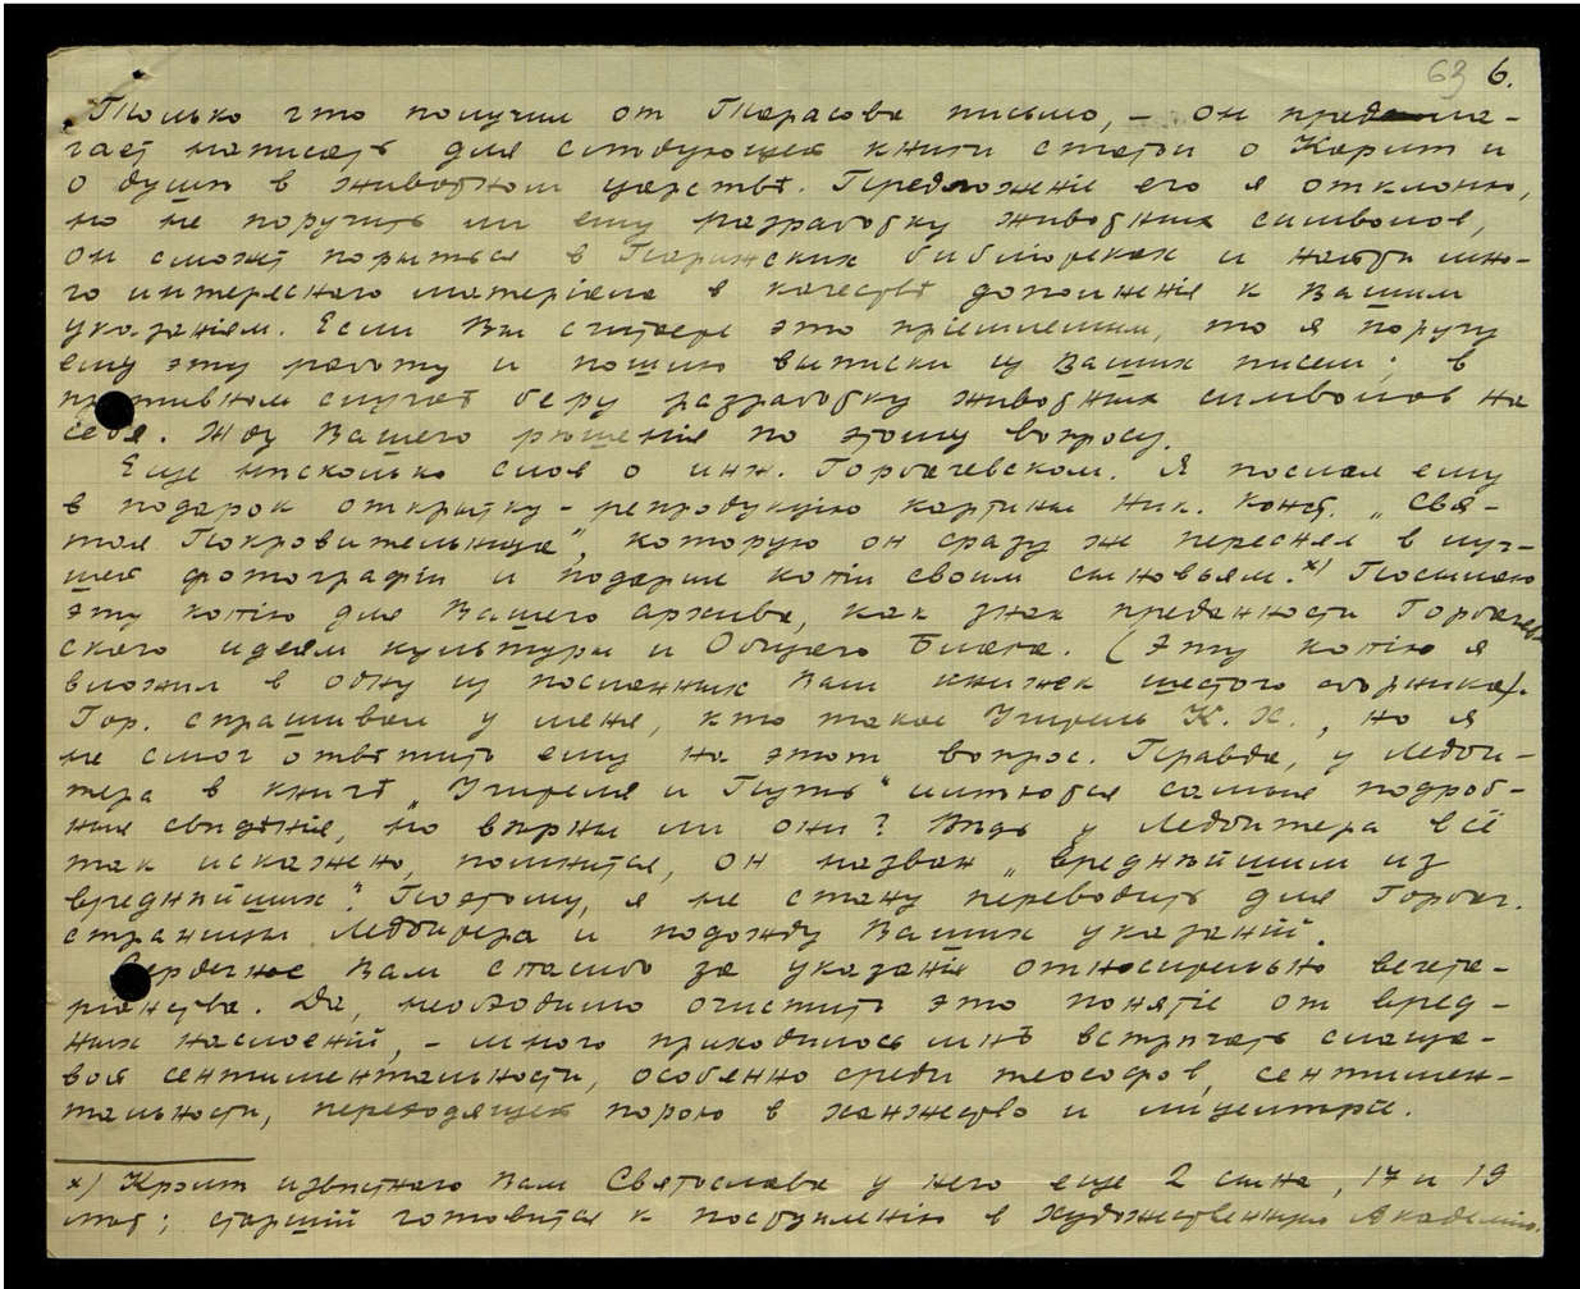 63 6.
Только что получил от Тарасова письмо, – он предлa-
гает написать для слѣдующей книги статьи о Кармѣ и
о душѣ в животном царствѣ. Предложеніе его я отклоню,
но не поручить ли ему разработку животных символов,
он сможет порыться в Парижских библіотеках и найти мно-
го интереснаго матеріала в качествѣ дополненія к Вашим
указаніям. Если Вы считаете это пріемлемым, то я поручу
ему эту работу и пошлю выписки из Ваших писем; в
противном случаѣ беру разработку животных символов на
себя. Жду Вашего рѣшенія по этому вопросу.
Еще нѣсколько слов о инж. Горбачевском. Я послал ему
в подарок открытку – репродукцію картины Ник. Конст. „Свя-
тая Покровительница", которую он сразу же переснял в луч-
шей фотографіи и подарил копіи своим сыновьям.х) Посылаю
эту копію для Вашего архива, как знак преданности Горбачев
скаго идеям культуры и Общаго Блага. (Эту копію я
вложил в одну из посланных Вам книжек шестого сборника).
Гор. спрашивал у меня, кто такое Учитель К. Х., но я
не смог отвѣтить ему на этот вопрос. Правда, у Ледби-
тера в книгѣ „Учителя и Путь" имѣются самые подроб-
ные свѣдѣнія, но вѣрны ли они? Вѣдь у Ледбитера всё
так искажено, помнится, он назван „вреднѣйшим из
вреднѣйших". Поэтому, я не стану переводить для Горбач.
страницы Ледбитера и подожду Ваших указаній.
Сердечное Вам спасибо за указанія относительно вегета-
ріанства. Да, необходимо очистить это понятіе от вред-
ных наслоеній, – много приходилось мнѣ встрѣчать слаща-
вой сентиментальности, особенно среди теософов, сентимен-
тальности, переходящей порою в ханжество и лицемѣріе.
х) Кромѣ извѣстнаго Вам Святослава у него еще 2 сына, 17 и 19
лѣт; старшій готовится к поступленію в художественную Академію.